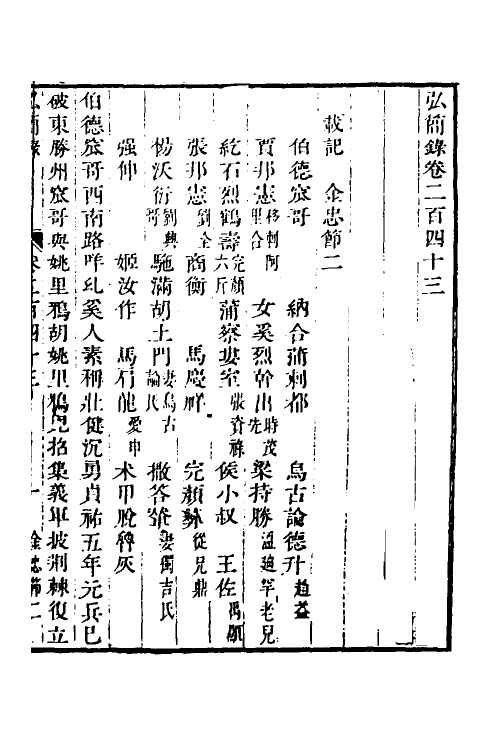 弘簡錄卷二百四十三
載記 金忠節二
伯德窊哥 納合蒲剌都 烏古論德升 趙益
賈邦憲 移剌阿里合 女奚烈斡出 時茂先 梁持勝 溫迪罕老兒
紇石烈鶴壽 完顏六斤 蒲察婁室 張資祿 侯小叔 王佐 禹顯
張邦憲 劉全 商衡 馬慶祥 完顏 從兄鼎
楊沃衍 劉興哥 駞滿胡土門 妻烏古論氏 撒答 妻獨吉氏
强伸 姬汝作 馬石龍 愛申 术甲脫魯灰
伯德窊哥西南路咩乣奚人素稱壯健沉勇貞祐五年元兵已
破東勝州窊哥與姚里鴉胡姚里鴉兒招集義軍披荆棘復立
弘簡錄 卷二百四十三 金忠節二